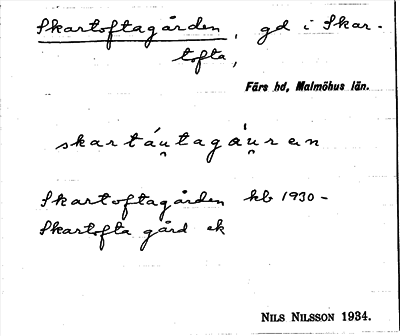 Skartoftagården, gd i Skar-
tofta,
Färs hd, Malmöhus län.
skartáu̯tagàu̯ren
Skartoftagården kb 1930 -
Skartofta gård ek
NILS NILSSON 1934.